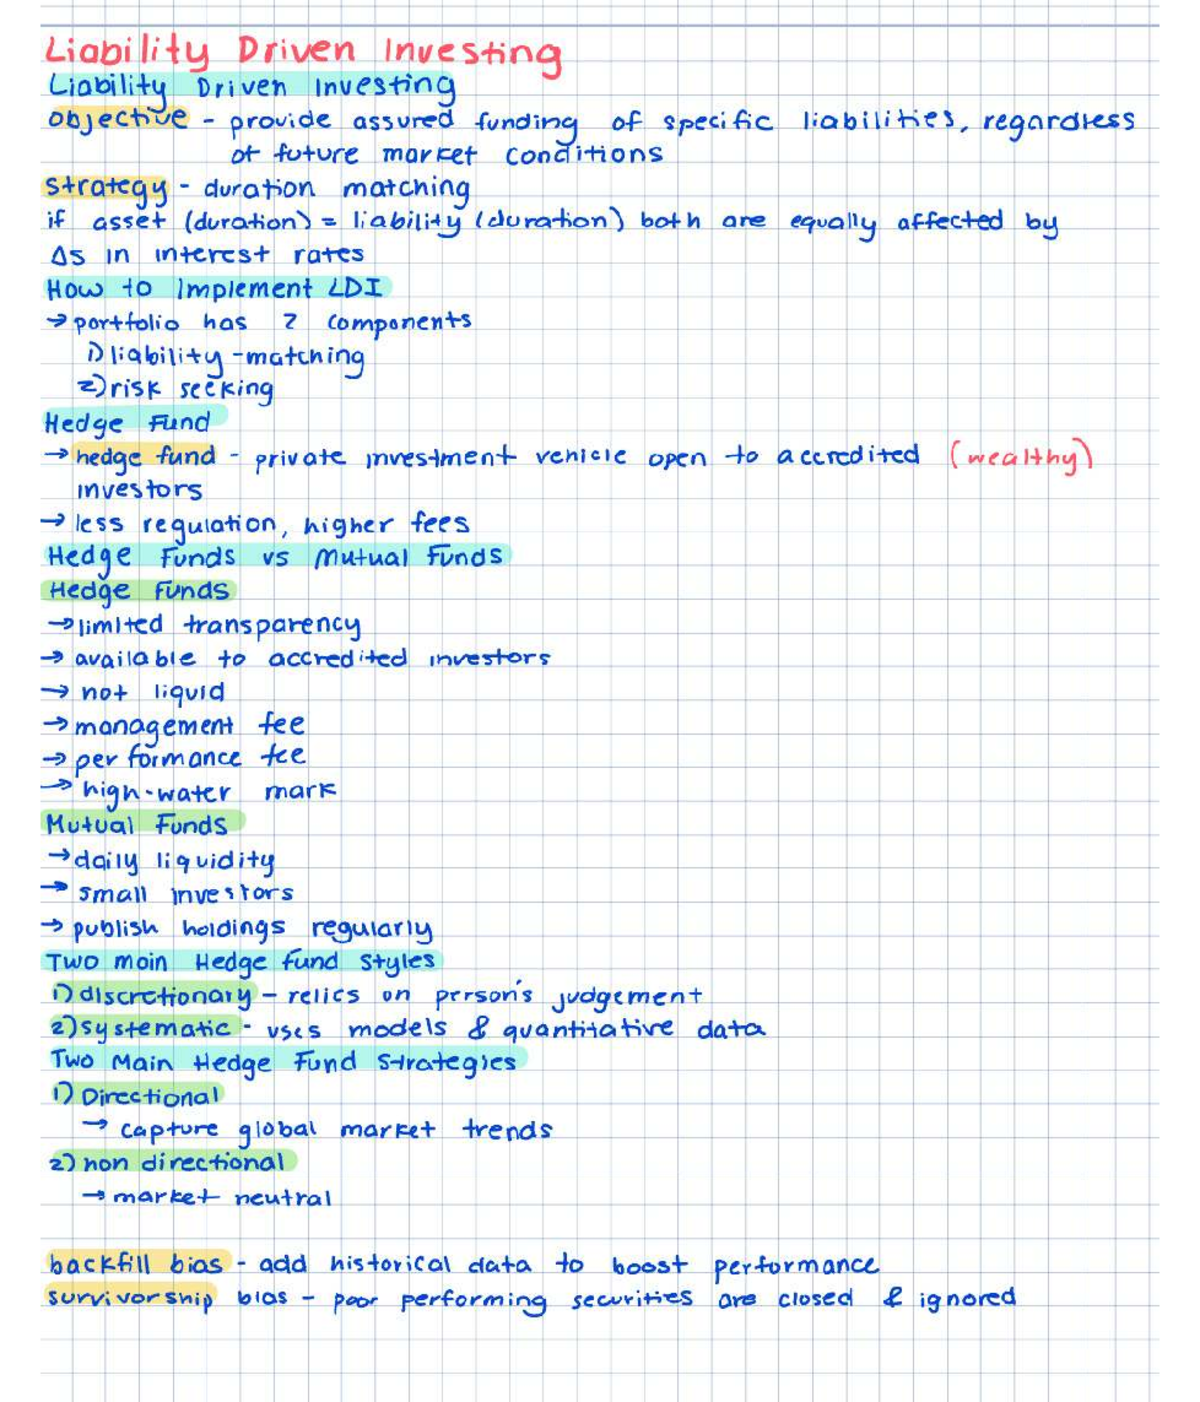 Liability Driven Investing
Liability Driven Investing
objective - provide assured funding of specific liabilities, regardless
of future market conditions
strategy - duration matching
if asset (duration) = liability (duration) both are equally affected by
Δs in interest rates
How to Implement LDI
→ portfolio has 2 components
1) liability-matching
2) risk seeking
Hedge Fund
→ hedge fund - private investment vehicle open to accredited (wealthy)
investors
→ less regulation, higher fees
Hedge Funds vs Mutual Funds
Hedge Funds
→ limited transparency
→ available to accredited investors
→ not liquid
→ management fee
→ performance fee
→ high-water mark
Mutual Funds
→ daily liquidity
→ small investors
→ publish holdings regularly
Two main Hedge fund styles
1) discretionary - relies on person's judgement
2) systematic - uses models & quantitative data
Two Main Hedge Fund Strategies
1) Directional
→ capture global market trends
2) non directional
→ market neutral
backfill bias - add historical data to boost performance
survivorship bias - poor performing securities are closed & ignored